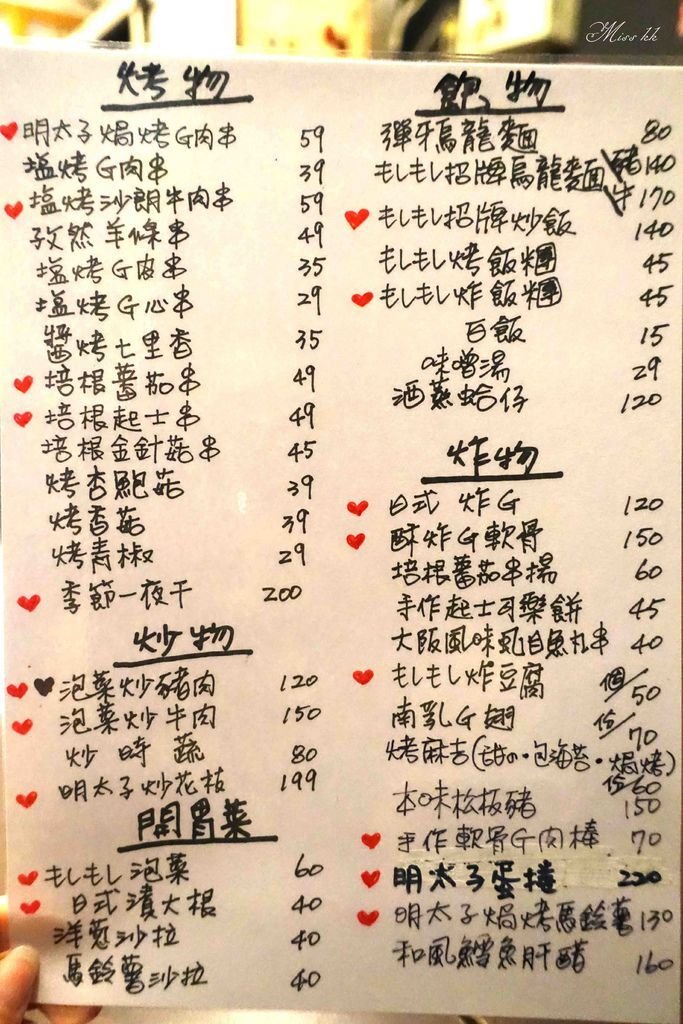 Miss kk
烤物
明太子焗烤G肉串 59
塩烤G肉串 39
塩烤沙朗牛肉串 59
孜然羊條串 49
塩烤G皮串 35
塩烤G心串 29
醬烤七里香 35
培根蕃茄串 49
培根起士串 49
培根金針菇串 45
烤杏鮑菇 39
烤香菇 39
烤青椒 29
季節一夜干 200
炒物
泡菜炒豬肉 120
泡菜炒牛肉 150
炒時蔬 80
明太子炒花枝 199
開胃菜
もしもし泡菜 60
日式漬大根 40
洋蔥沙拉 40
馬鈴薯沙拉 40
飽物
彈牙烏龍麵 80
もしもし招牌烏龍麵 豬140
牛170
もしもし招牌炒飯 140
もしもし烤飯糰 45
もしもし炸飯糰 45
白飯 15
味噌湯 29
酒蒸蛤仔 120
炸物
日式 炸G 120
酥炸G軟骨 150
培根蕃茄串揚 60
手作起士可樂餅 45
大阪風味虱目魚丸串 40
もしもし炸豆腐 個/50
南乳G翅 份/70
烤麻吉(甜の・包海苔・焗烤)
15/60
本味松板豬 150
手作軟骨G肉棒 70
明太子蛋捲 220
明太子焗烤馬鈴薯 130
和風鱈魚肝醋 160